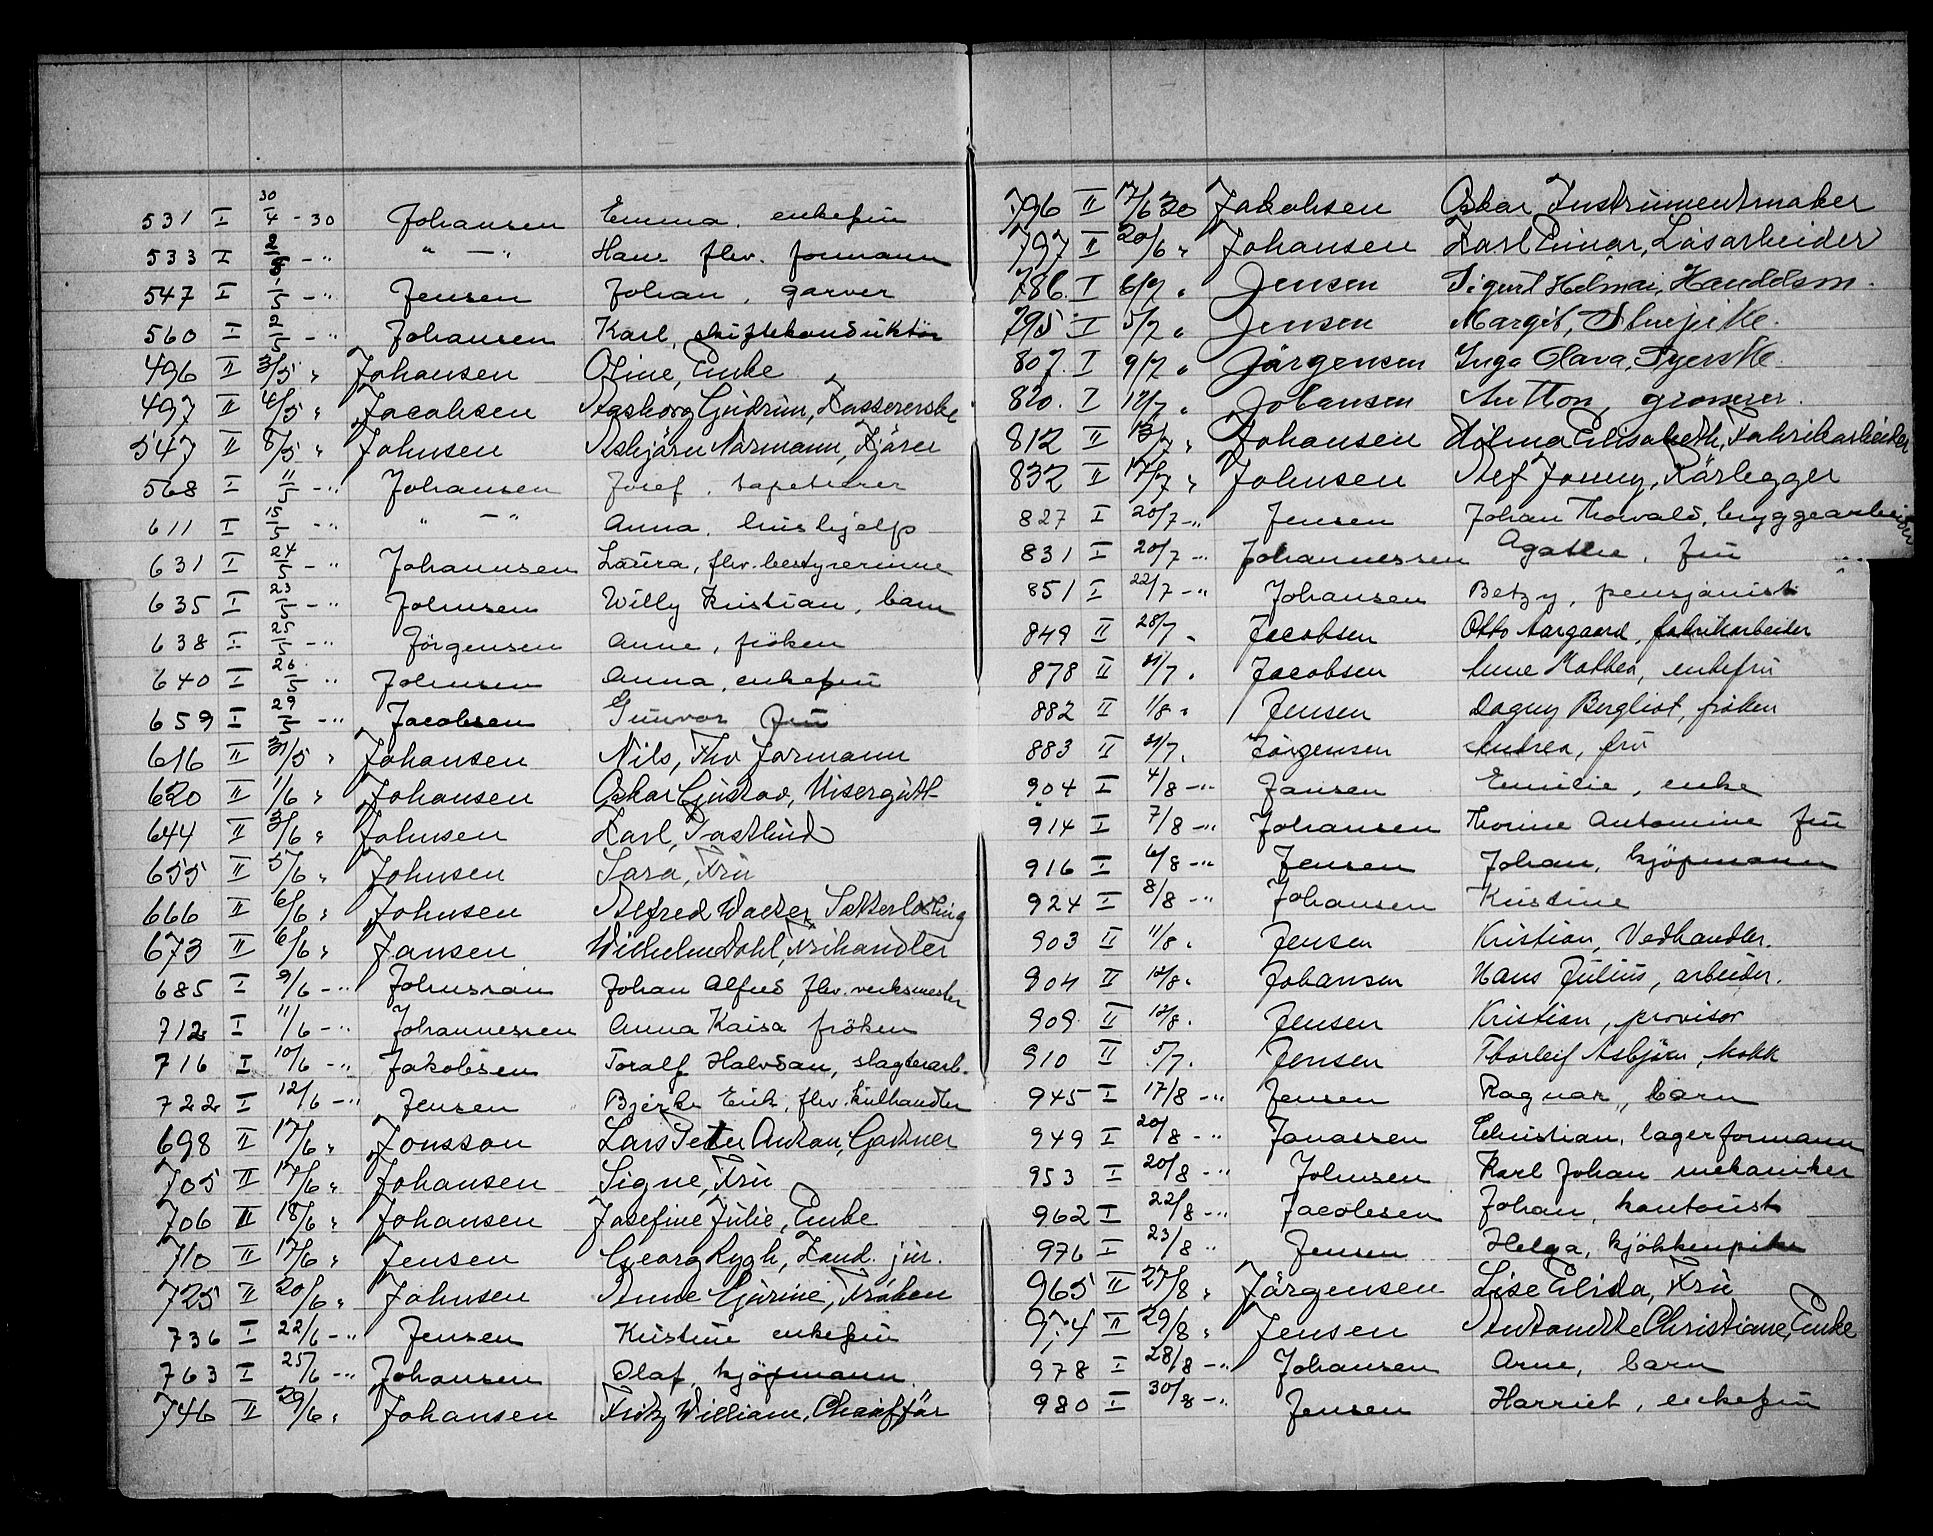 531 I 30/4 - 30 Johansen Emma, enkefru
533 I 2/5 - " " — " Hans flv. formann
547 I 1/5 - " Jensen Johan, garver
560 I 2/5 - " Johansen Karl, skiftekonduktör
496 II 3/5 " Johansen Oline, Enke
497 II 4/5 " Jacobsen Aasborg Gudrun, Kassererske
547 II 8/5 " Johnsen Asbjörn Normann, Kjörer
568 I 11/5 - " Johansen Josef, tapetserer
611 I 15/5 - " " — " Anna, hushjelp
631 I 24/5 - " Johannsen Laura, flv. bestyrerinne
635 I 23/5 - " Johnsen Willy Kristian, barn
638 I 25/5 - " Jörgensen Anne, fröken
640 I 26/5 " Johnsen Anna, enkefru
659 I 29/5 - " Jacobsen Gunvor fru
616 II 31/5 " Johansen Nils, Fhv Formann
620 II 1/6 " Johansen Oskar Gustav, Visergutt
644 II 3/6 " Johnsen Karl, Postbud
655 II 5/6 " Johnsen Sara, Fru
666 II 6/6 " Johnsen Alfred Walter Setterlærling
673 II 6/6 " Jansen Wilhelm Dahl, Frihandler
685 I 9/6 - " Johnsrån Johan Alfred flv. verksmester
712 I 11/6 - " Johannessen Anna Kaisa fröken
716 I 10/6 - " Jakobsen Toralf Halvdan, slagterarb.
722 I 12/6 - " Jensen Bjerke Erik, flv. kulhandler
698 II 17/6 " Jonsson Lars Peter Anton, Gartner
705 II 17/6 " Johansen Signe, Fru
706 II 18/6 " Johansen Josefine Julie, Enke
710 II 17/6 " Jensen Georg Rygh, Kand. jur.
725 II 20/6 " Johnsen Anne Gurine, Fröken
736 I 22/6 - " Jensen Kristine enkefru
763 I 25/6 - " Johansen Olaf, kjöpmann.
746 II 29/6 " Johansen Fritz William, Chaufför
796 II 17/6 30 Jakobsen Oskar Instrumentmaker
797 II 20/6 " Johansen Karl Einar, Låsarbeider
786. I 6/7 " Jensen Sigurd Helmar, Handelsm.
795 I 5/7 " Jensen Margit, Stuepike.
807. I 9/7 " Jörgensen Inga Olava, Syerske
820. I 12/7 " Johansen Anton, grosserer.
812 II 13/7 " Johansen Hilma Elisabeth, Fabrikarbeider
832 II 17/7 " Johnsen Alf Jonny, Rörlegger
827 I 20/7 - " Jensen Johan Thorvald, bryggearbeider
831 I 20/7 - " Johannessen Agathe, fru
851 I 22/7 - " Johansen Betzy, pensjonist
849 II 28/7 " Jacobsen Otto Aargaard, fabrikarbeider
878 II 31/7 " Jacobsen Anne Kathea, enkefru
882 II 1/8 " Jensen Dagny Bergliot, fröken
883 II 31/7 " Jörgensen Andrea, fru
904 I 4/8 - " Jansen Emilie, enke
914 I 7/8 - " Johansen Thorine Antonine fru
916 I 6/8 - " Jensen Johan, kjöpmann
924 I 8/8 - " Johansen Kristine
903 II 11/8 " Jensen Kristian, Vedhandler.
904 II 12/8 " Johansen Hans Julius, arbeider.
909 II 12/8 " Jensen Kristian, provisor
910 II 5/7. Jensen Thorleif Asbjörn, kokk
945 I 17/8 - " Jensen Ragnar, barn
949 I 20/8 - " Jonassen Christian, lagerformann
953 I 20/8 - " Johnsen Karl Johan mekaniker
962 I 22/8 - " Jacobsen Johan, kontorist
976 I 23/8 " Jensen Helga, kjökkenpike
965 II 27/8 " Jörgensen Lise Elida, Fru
974 II 29/8 " Jensen Antonette Christiane, Enke
978 I 28/8 - " Johansen Arne, barn
980 I 30/8 - " Jensen Harriet, enkefru